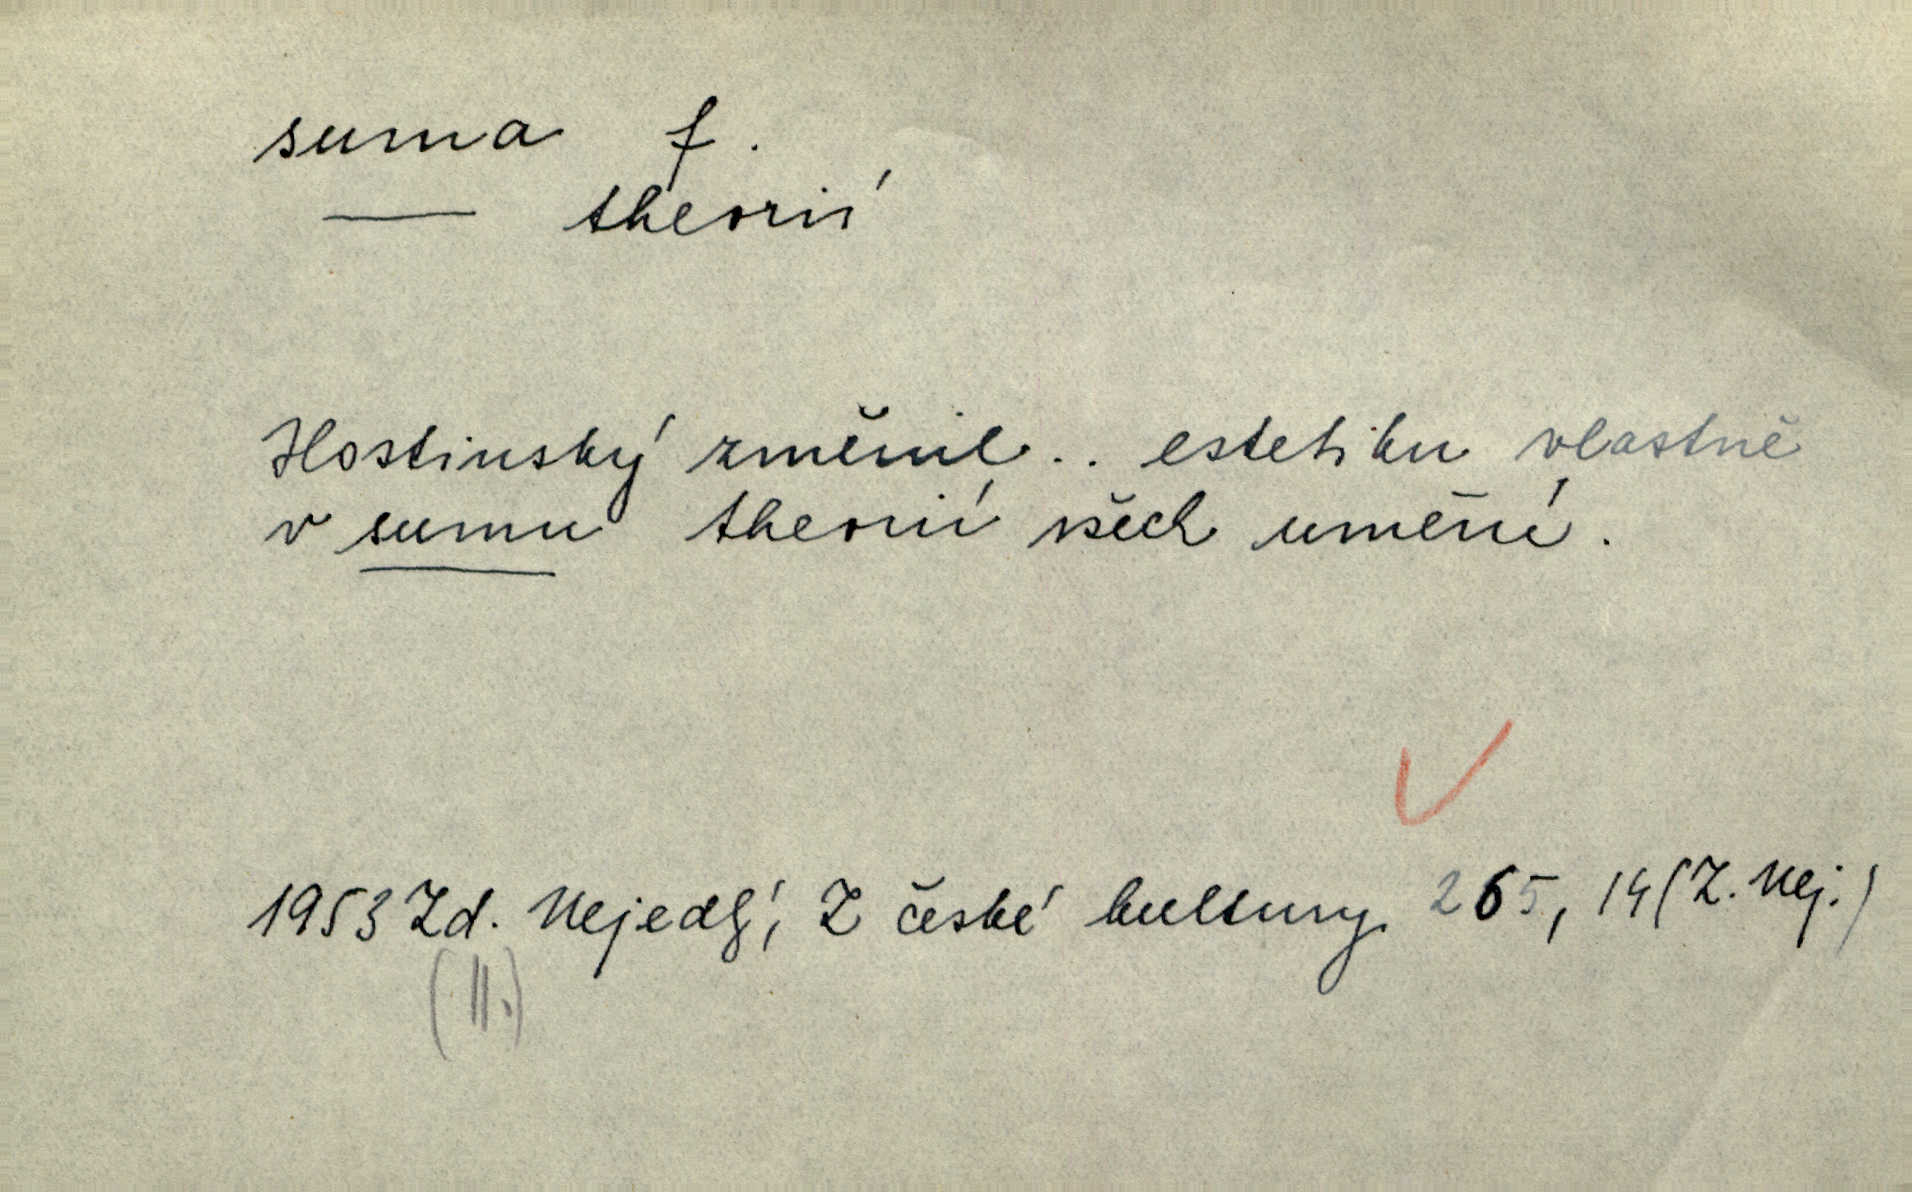 suma f.
— theorií
Hostinský změnil .. estetiku vlastně
v sumu theorií všech umění.
1953 Zd. Nejedlý, Z české kultury 265, 14 (Z. Nej.)
(II.)